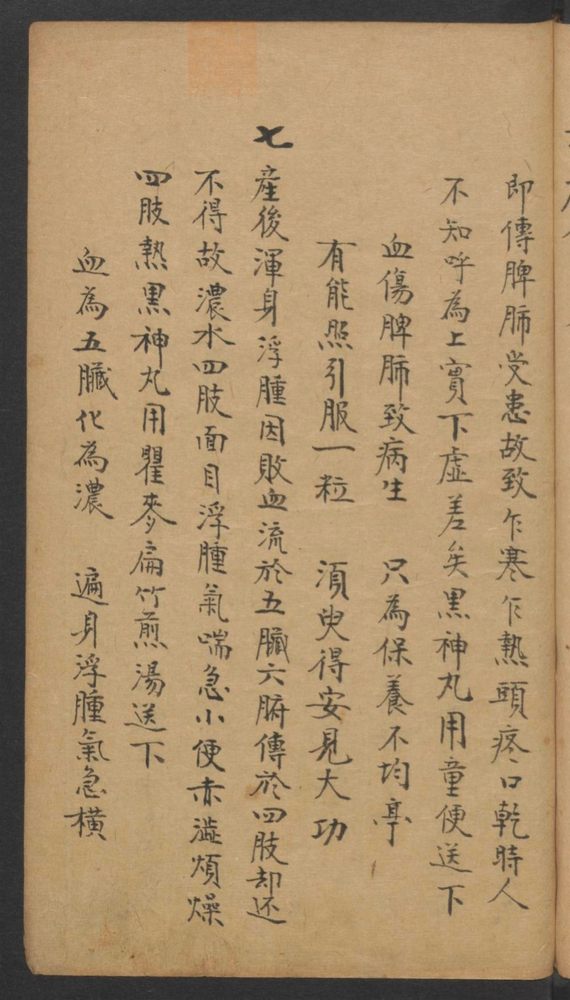 即傳脾肺受患故致乍寒乍熱頭疼口乾時人
不知呼為上實下虛差矣黒神丸用童便送下
血傷脾肺致病生　只為保養不均亭
有能照引服一粒　須臾得安見大功
七
産後渾身浮腫因敗血流於五臓六腑傳於四肢却还
不得故濃水四肢面目浮腫氣喘急小便赤澁煩燥
四肢熱黒神丸用瞿麥扁竹煎湯送下
血為五臓化為濃　遍身浮腫氣急橫